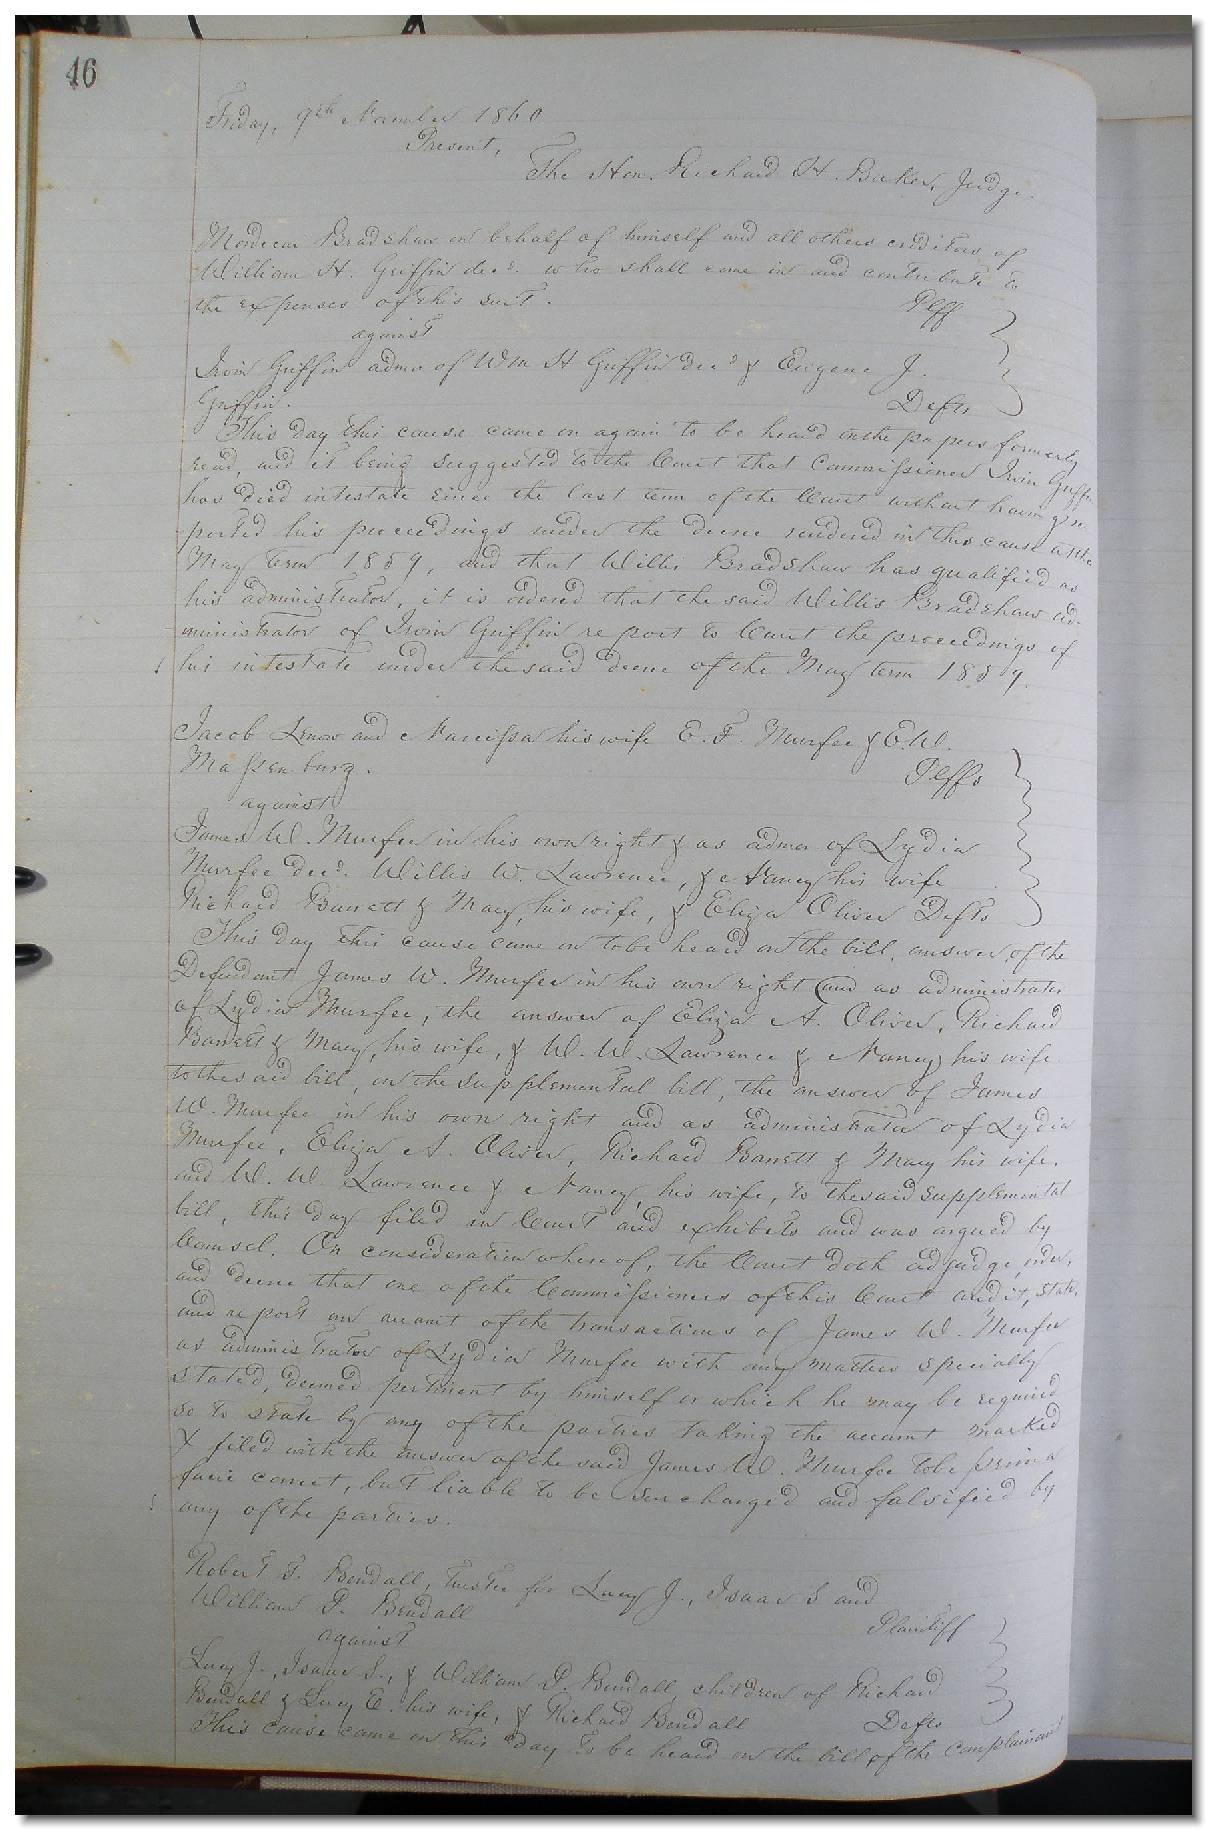 46
Friday, 9th November 1860
Present,
The Hon. Richard H. Baker, Judge.
Mordecai Bradshaw on behalf of himself and all others creditors of
William H. Griffin decd. who shall come in and contribute to
the expenses of this suit. Plff
against
Irvin Griffin admr of Wm H Griffin decd & Eugene J.
Griffin. Defts
This day this cause came on again to be heard on the papers formerly
read, and it being suggested to the Court that Commissioner Irvin Griffin
has died intestate since the last term of the Court without having re
ported his proceedings under the decree rendered in this cause at the
May term 1859, and that Willis Bradshaw has qualified as
his administrator, it is ordered that the said Willis Bradshaw ad-
ministrator of Irvin Griffin report to Court the proceedings of
his intestate under the said decree of the May term 1859.
Jacob Lenow and Narcissa his wife E. F. Murfee & E. W.
Massenburg. Plffs
against
James W. Murfee in his own right & as admr of Lydia
Murfee decd. Willis W. Lawrence, & Nancy his wife
Richard Barrett & Mary, his wife, & Eliza Oliver Defts
This day this cause came on to be heard on the bill, answer of the
Defendant James W. Murfee in his own right and as administrator
of Lydia Murfee, the answer of Eliza A. Oliver, Richard
Barrett & Mary, his wife, & W. W. Lawrence & Nancy his wife
to the said bill, on the supplemental bill, the answer of James
W. Murfee in his own right and as administrator of Lydia
Murfee, Eliza A. Oliver, Richard Barrett & Mary his wife,
and W. W. Lawrence & Nancy, his wife, to the said supplemental
bill, this day filed in Court and exhibits and was argued by
Counsel. On consideration whereof, the Court doth adjudge, order,
and decree that one of the Commissioners of this Court audit, state,
and report an account of the transactions of James W. Murfee
as administrator of Lydia Murfee with any matters specially
stated, deemed pertinent by himself or which he may be required
so to state by any of the parties taking the account marked
X filed with the answer of the said James W. Murfee to be prima
facie correct, but liable to be surcharged and falsified by
any of the parties.
Robert F. Bendall, Trustee for Lucy J., Isaac S and
William P. Bendall Plaintiff
against
Lucy J., Isaac S., & William P. Bendall, children of Richard
Bendall & Lucy E. his wife, & Richard Bendall Defts
This cause came on this day to be heard on the bill of the complainant